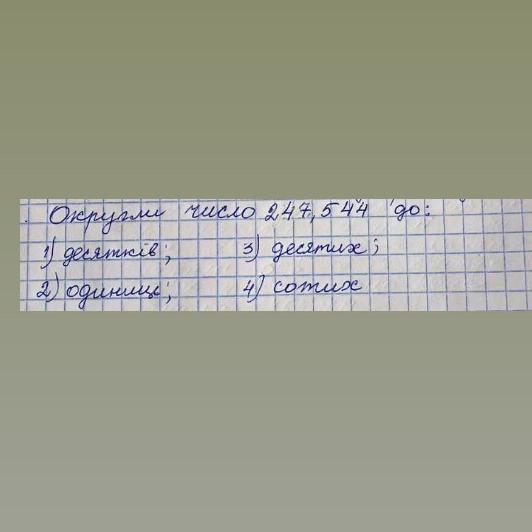 Округли число 247,544 до:
1) десятків; 3) десятих;
2) одиниць; 4) сотих